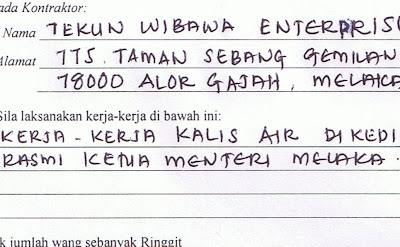 ada Kontraktor:
Nama TEKUN WIBAWA ENTERPRIS
Alamat 775. TAMAN SEBANG GEMILAN
78000 ALOR GAJAH, MELAKA
Sila laksanakan kerja-kerja di bawah ini:
KERJA-KERJA KALIS AIR DI KEDI
RASMI KETUA MENTERI MELAKA.
k jumlah wang sebanyak Ringgit